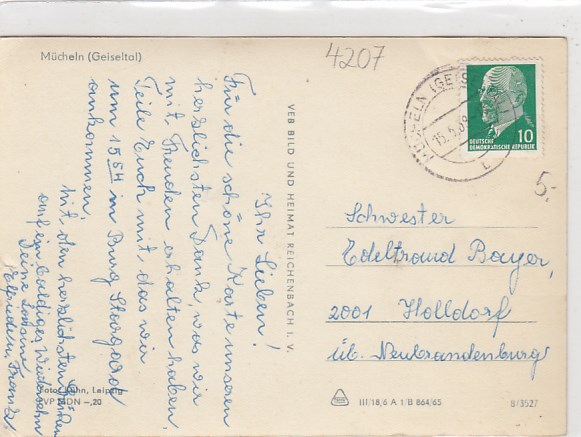 Mücheln (Geiseltal)
4207
Ihr Lieben!
Für die schöne Karte unseren
herzlichsten Dank, was wir
mit Freuden erhalten haben.
Teile Euch mit, das wir
um 15 54 in Burg Stargard
ankommen.
Mit den herzlichsten Grüßen
auf ein baldiges Wiedersehn
Elfriede u. Franz
VEB BILD UND HEIMAT REICHENBACH I. V.
MÜCHELN (GEIS
15.6.
10
DEUTSCHE
DEMOKRATISCHE REPUBLIK
5.-
Schwester
Edeltraud Bayer,
2001 Holldorf
üb. Neubrandenburg
Foto: Kühn, Leipzig
EVP MDN -,20
III/18/6 A 1/B 864/65
8/3527